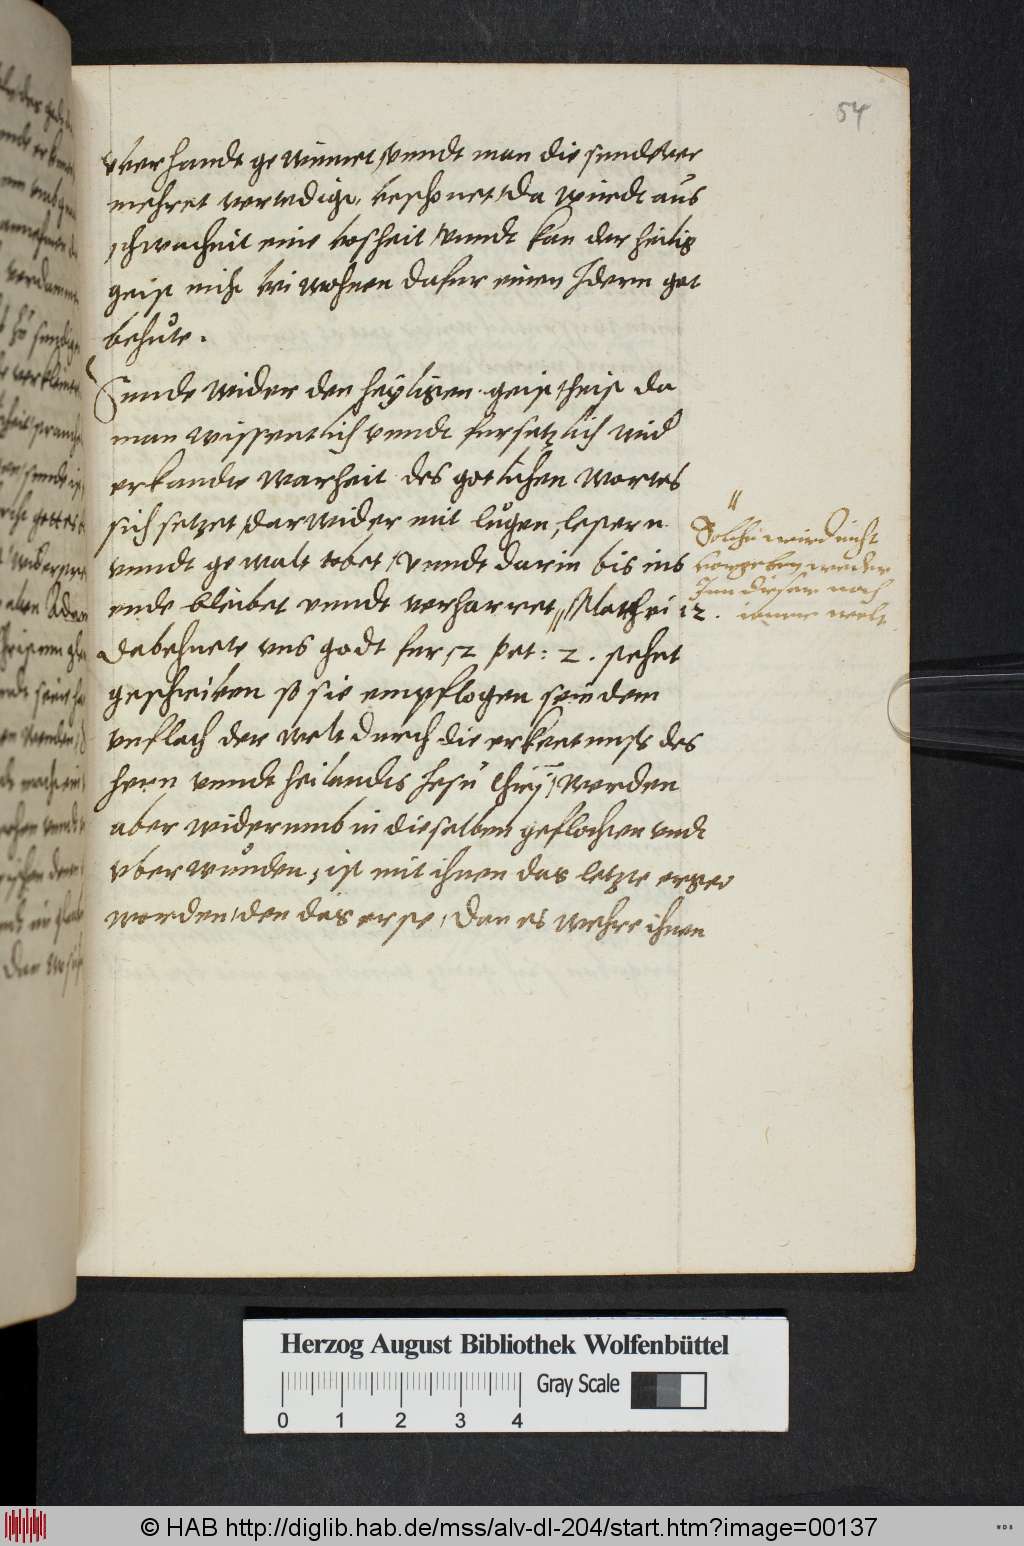 54
vberhandt gewinnet, vnndt man die sunde ver
mehret vertedigt, beschonet, da wirdt aus
schwacheit eine bosheit, vnndt kan der heilig
geist nicht bei wohnen dafur einen Idern got
behüte.
Sunde wider den heyligen geist heist da
man wissentlich vnndt fursetzlich wid
erkandte warheit des gotlichen wortes
sich setzet, darwider mit lügen, lestern
vnndt gewalt tobet, vnndt darin bis ins
ende bleibet vnndt verharret, Matthei 12.
Solchs wird nicht
vorgeben weder
Inn dieser noch
ienner welt
Dabehuete vns godt fur, 2 pet: 2. stehet
geschrieben so sie empflogen sein dem
vnflath der welt durch die erkentnuss des
hern vnndt heilandts Jesu Christi, werden
aber widerumb in dieselben geflochten vndt
vberwunden, ist mit ihnen das letzte erger
worden, den das erste, Dan es wehre ihnen
Herzog August Bibliothek Wolfenbüttel
0 1 2 3 4 Gray Scale
© HAB http://diglib.hab.de/mss/alv-dl-204/start.htm?image=00137